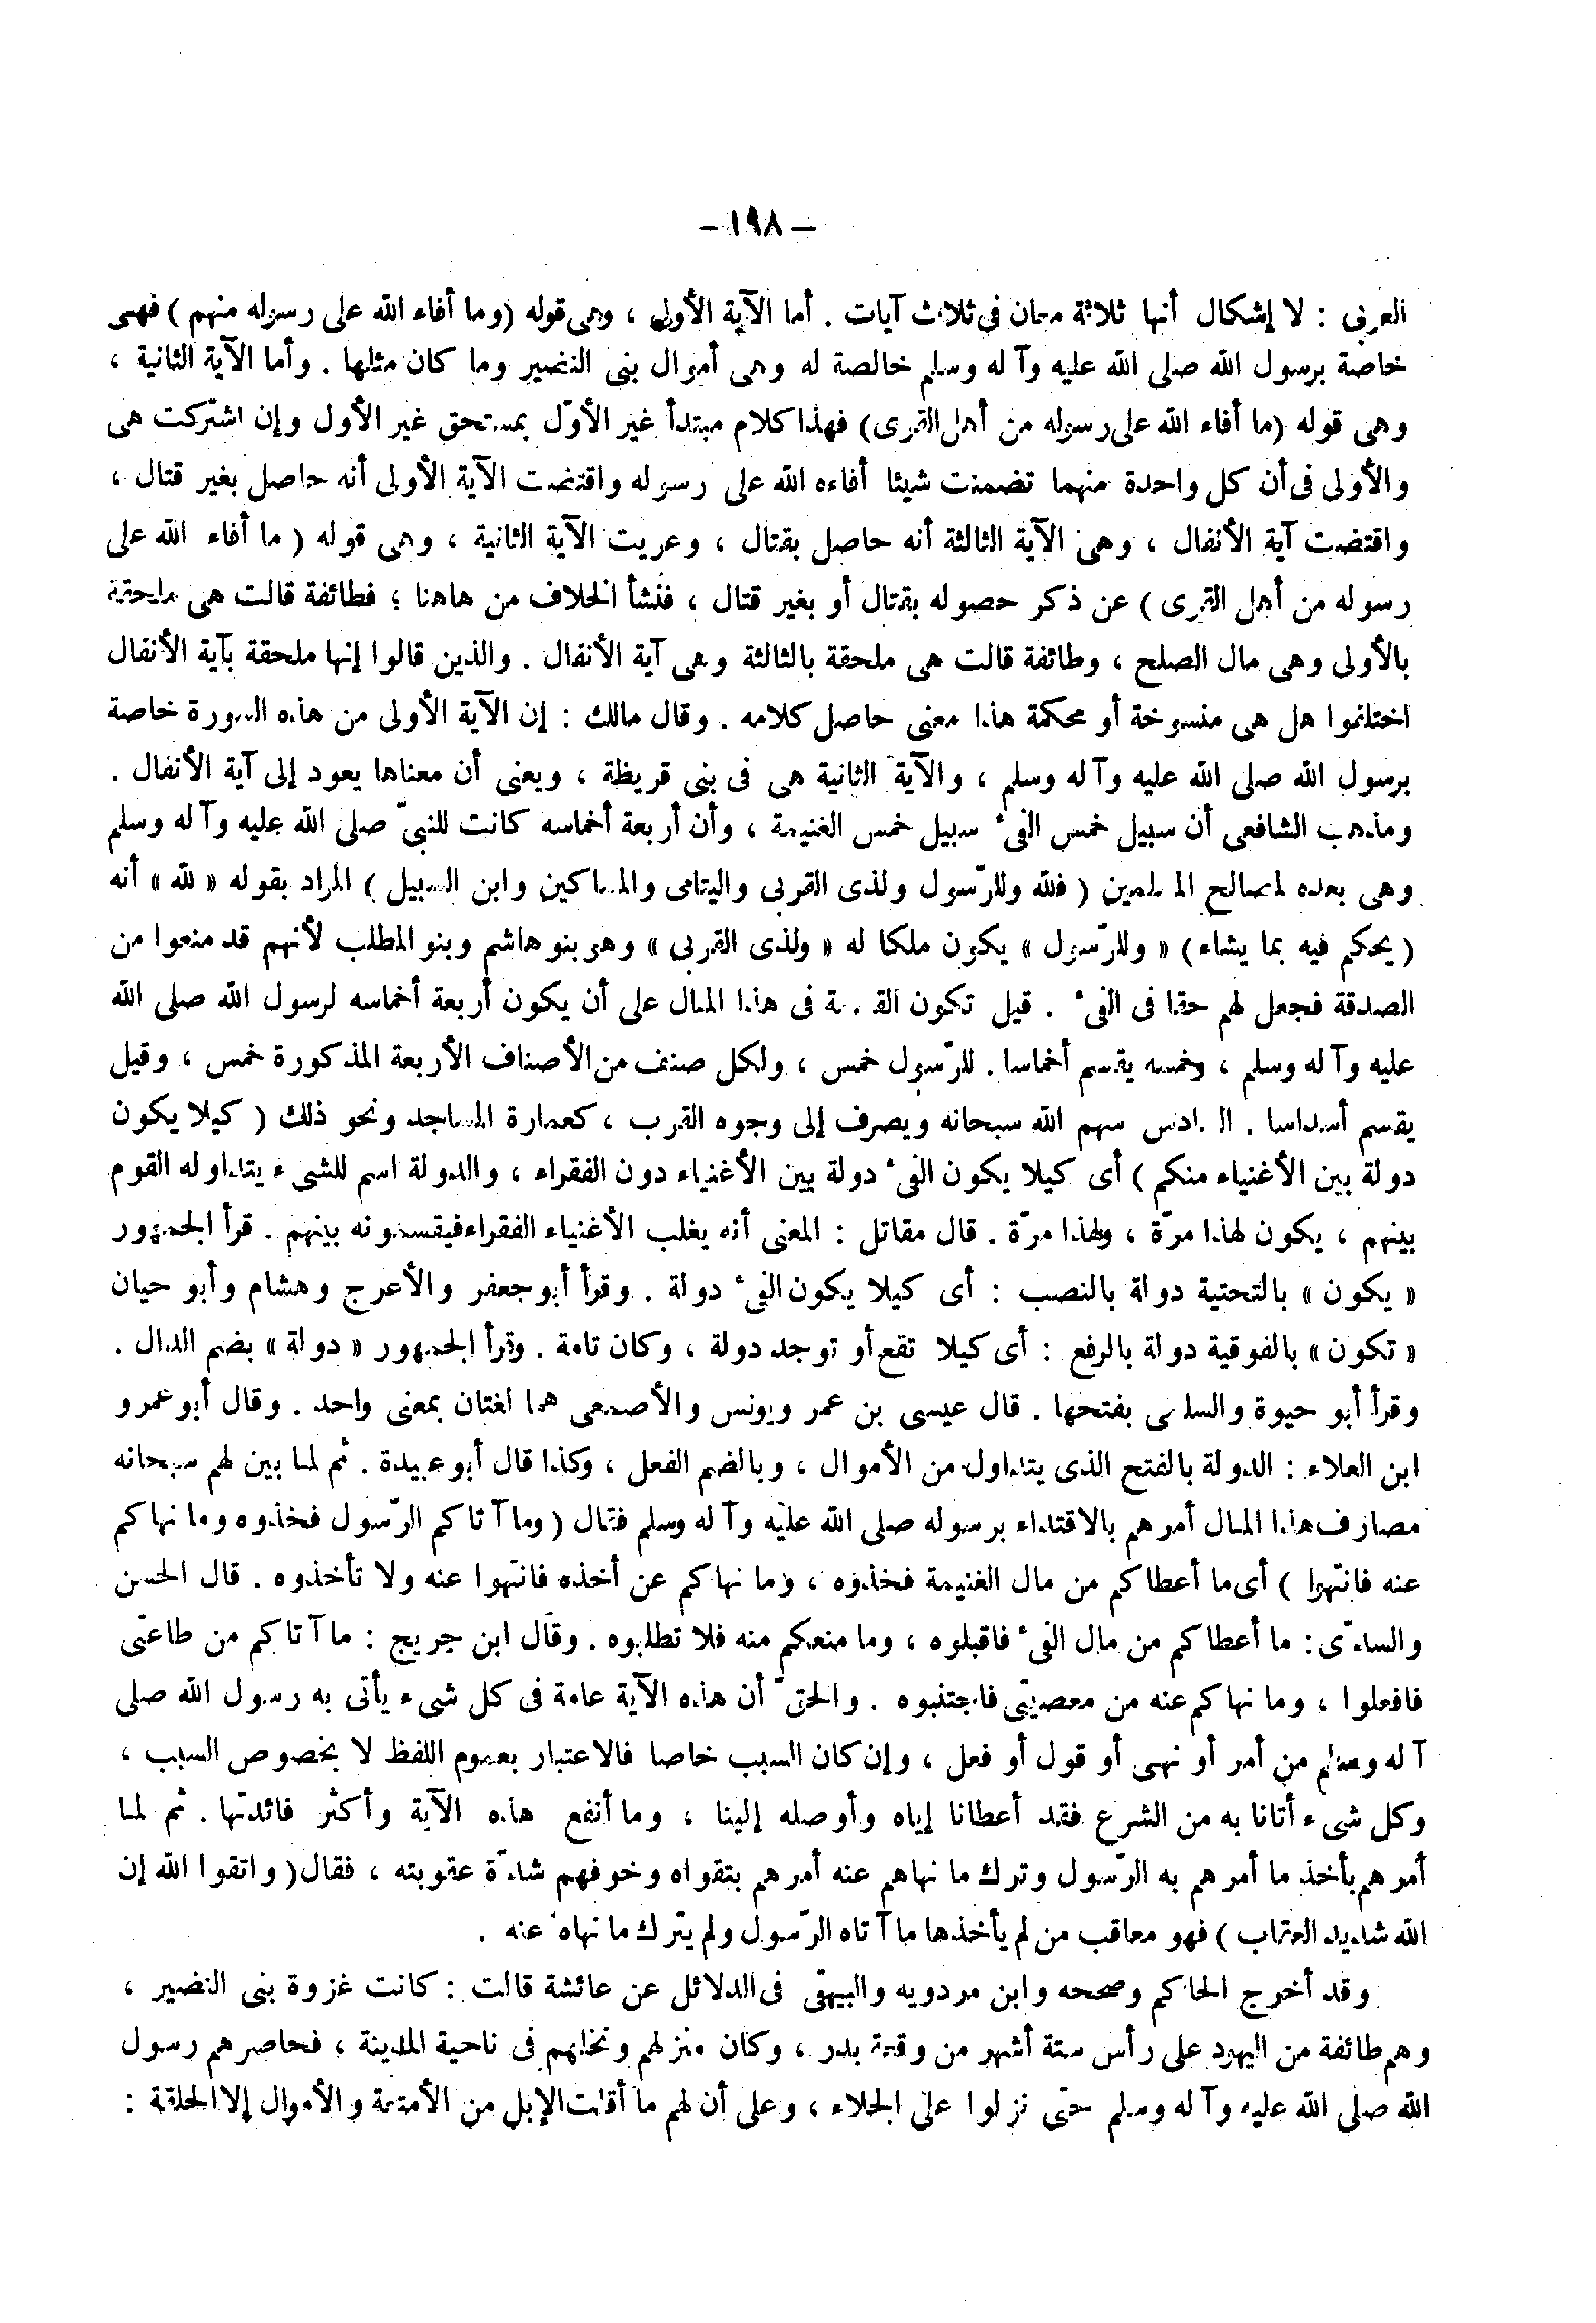 – ١٩٨ –
العربى : لا إشكال أنها ثلاثة معان فى ثلاث آيات . أما الآية الأولى ، وهى قوله (وما أفاء الله على رسوله منهم ) فهى
خاصة برسول الله صلى الله عليه وآ له وسلم خالصة له وهى أموال بنى النضير وما كان مثلها . وأما الآية الثانية ،
وهى قوله (ما أفاء الله على رسوله من أهل القرى) فهذا كلام مبتدأ غير الأوّل بمستحق غير الأول وإن اشتركت هى
والأولى فى أن كل واحدة منهما تضمنت شيئا أفاءه الله على رسوله واقتضت الآية الأولى أنه حاصل بغير قتال ،
واقتضت آية الأنفال ، وهى الآية الثالثة أنه حاصل بقتال ، وعريت الآية الثانية ، وهى قوله ( ما أفاء الله على
رسوله من أهل القرى ) عن ذكر حصوله بقتال أو بغير قتال ، فنشأ الخلاف من هاهنا ؛ فطائفة قالت هى ملحقة
بالأولى وهى مال الصلح ، وطائفة قالت هى ملحقة بالثالثة وهى آية الأنفال . والذين قالوا إنها ملحقة بآية الأنفال
اختلفوا هل هى منسوخة أو محكمة هذا معنى حاصل كلامه . وقال مالك : إن الآية الأولى من هذه السورة خاصة
برسول الله صلى الله عليه وآ له وسلم ، والآية الثانية هى فى بنى قريظة ، ويعنى أن معناها يعود إلى آية الأنفال .
ومذهب الشافعى أن سبيل خمس الفىء سبيل خمس الغنيمة ، وأن أربعة أخماسه كانت للنبىّ صلى الله عليه وآ له وسلم
وهى بعده لمصالح المسلمين ( فلله وللرّسول ولذى القربى واليتامى والمساكين وابن السبيل ) المراد بقوله « لله » أنه
( يحكم فيه بما يشاء ) « وللرّسول » يكون ملكا له « ولذى القربى » وهم بنو هاشم وبنو المطلب لأنهم قد منعوا من
الصدقة فجعل لهم حقا فى الفىء . قيل تكون القسمة فى هذا المال على أن يكون أربعة أخماسه لرسول الله صلى الله
عليه وآ له وسلم ، وخمسه يقسم أخماسا . للرّسول خمس ، ولكل صنف من الأصناف الأربعة المذكورة خمس ، وقيل
يقسم أسداسا . السادس سهم الله سبحانه ويصرف إلى وجوه القرب ، كعمارة المساجد ونحو ذلك ( كيلا يكون
دولة بين الأغنياء منكم ) أى كيلا يكون الفىء دولة بين الأغنياء دون الفقراء ، والدولة اسم للشىء يتداوله القوم
بينهم ، يكون لهذا مرّة ، ولهذا مرّة . قال مقاتل : المعنى أنه يغلب الأغنياء الفقراء فيقسمونه بينهم . قرأ الجمهور
« يكون » بالتحتية دولة بالنصب : أى كيلا يكون الفىء دولة . وقرأ أبو جعفر والأعرج وهشام وأبو حيان
« تكون » بالفوقية دولة بالرفع : أى كيلا تقع أو توجد دولة ، وكان تامة . وقرأ الجمهور « دولة » بضم الدال .
وقرأ أبو حيوة والسلمى بفتحها . قال عيسى بن عمر ويونس والأصمعى هما لغتان بمعنى واحد . وقال أبو عمرو
ابن العلاء : الدولة بالفتح الذى يتداول من الأموال ، وبالضم الفعل ، وكذا قال أبو عبيدة . ثم لما بين لهم سبحانه
مصارف هذا المال أمرهم بالاقتداء برسوله صلى الله عليه وآ له وسلم فقال ( وما آتاكم الرّسول فخذوه وما نهاكم
عنه فانتهوا ) أى ما أعطاكم من مال الغنيمة فخذوه ، وما نهاكم عن أخذه فانتهوا عنه ولا تأخذوه . قال الحسن
والسدّى : ما أعطاكم من مال الفىء فاقبلوه ، وما منعكم منه فلا تطلبوه . وقال ابن جريج : ما آتاكم من طاعتى
فافعلوا ، وما نهاكم عنه من معصيتى فاجتنبوه . والحقّ أن هذه الآية عامة فى كل شىء يأتى به رسول الله صلى
آ له وسلم من أمر أو نهى أو قول أو فعل ، وإن كان السبب خاصا فالاعتبار بعموم اللفظ لا بخصوص السبب ،
وكل شىء أتانا به من الشرع فقد أعطانا إياه وأوصله إلينا ، وما أنفع هذه الآية وأكثر فائدتها . ثم لما
أمرهم بأخذ ما أمرهم به الرّسول وترك ما نهاهم عنه أمرهم بتقواه وخوفهم شدّة عقوبته ، فقال ( واتقوا الله إن
الله شديد العقاب ) فهو معاقب من لم يأخذها ما آتاه الرّسول ولم يترك ما نهاه عنه .
وقد أخرج الحاكم وصححه وابن مردويه والبيهقى فى الدلائل عن عائشة قالت : كانت غزوة بنى النضير ،
وهم طائفة من اليهود على رأس ستة أشهر من وقعة بدر ، وكان منزلهم ونخلهم فى ناحية المدينة ، فحاصرهم رسول
الله صلى الله عليه وآ له وسلم حتى نزلوا على الجلاء ، وعلى أن لهم ما أقلت الإبل من الأمتعة والأموال إلا الحلقة :